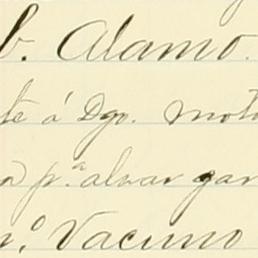 b. Alamo.
te á Dgo. moto
a p.ª alzar gan
n.º Vacuno